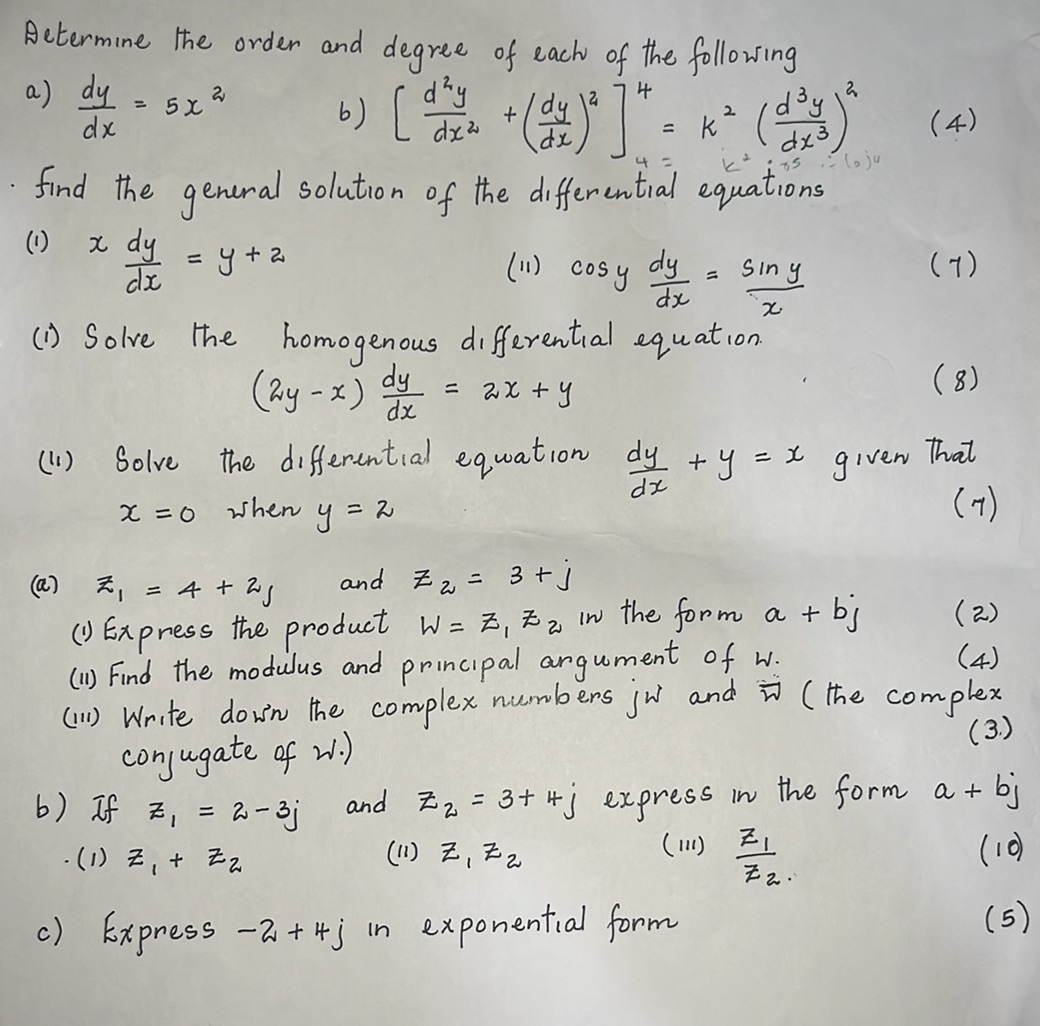 Determine the order and degree of each of the following
a) dy/dx = 5x² b) [d²y/dx² + (dy/dx)²]⁴ = k² (d³y/dx³)² (4)
find the general solution of the differential equations
(i) x dy/dx = y + 2 (ii) cos y dy/dx = sin y/x (7)
(i) Solve the homogenous differential equation.
(2y - x) dy/dx = 2x + y (8)
(ii) Solve the differential equation dy/dx + y = x given that
x = 0 when y = 2 (7)
(a) z₁ = 4 + 2j and z₂ = 3 + j
(i) Express the product W = z₁ z₂ in the form a + bj (2)
(ii) Find the modulus and principal argument of w. (4)
(iii) Write down the complex numbers jw and w̅ (the complex
conjugate of w.) (3.)
b) If z₁ = 2 - 3j and z₂ = 3 + 4j express in the form a + bj
(i) z₁ + z₂ (ii) z₁ z₂ (iii) z₁/z₂. (10)
c) Express -2 + 4j in exponential form (5)